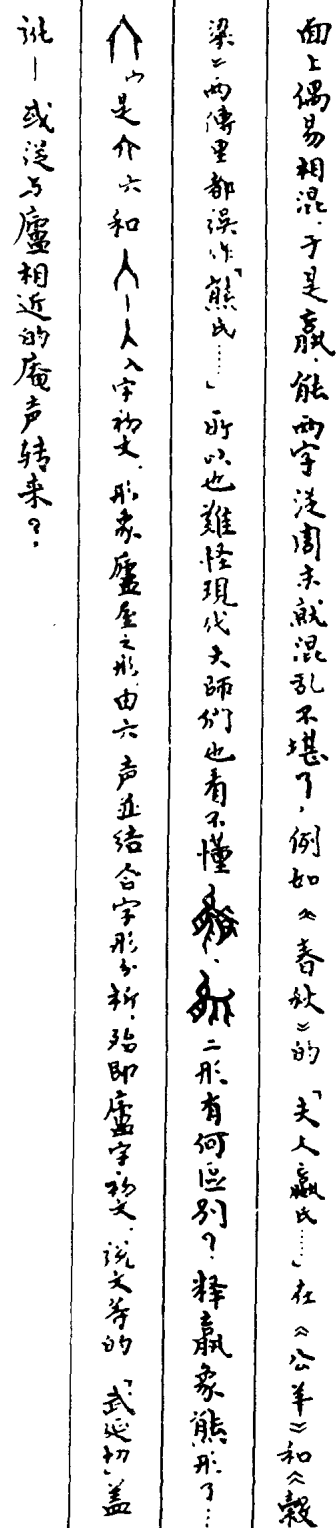 面上偶易相混．于是嬴．能两字従周末就混乱不堪了，例如《春秋》的「夫人嬴氏……」在《公羊》和《穀
梁》两傳里都误作「熊氏……」所以也難怪現代大師们也看不懂．二形有何區别？释嬴象熊形了…
「宀」是介六和人—人入字初文．形象廬屋之形．由六声並结合字形分析．殆即廬字初文．说文等的「武延切」盖
讹—或従与廬相近的庵声转来？．